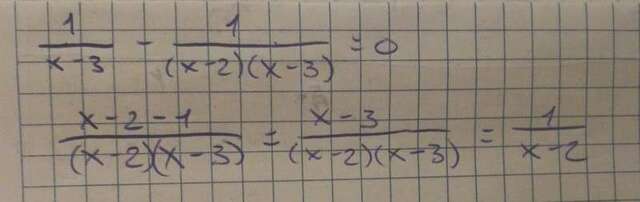 1/(x-3) - 1/((x-2)(x-3)) = 0
(x-2-1)/((x-2)(x-3)) = (x-3)/((x-2)(x-3)) = 1/(x-2)